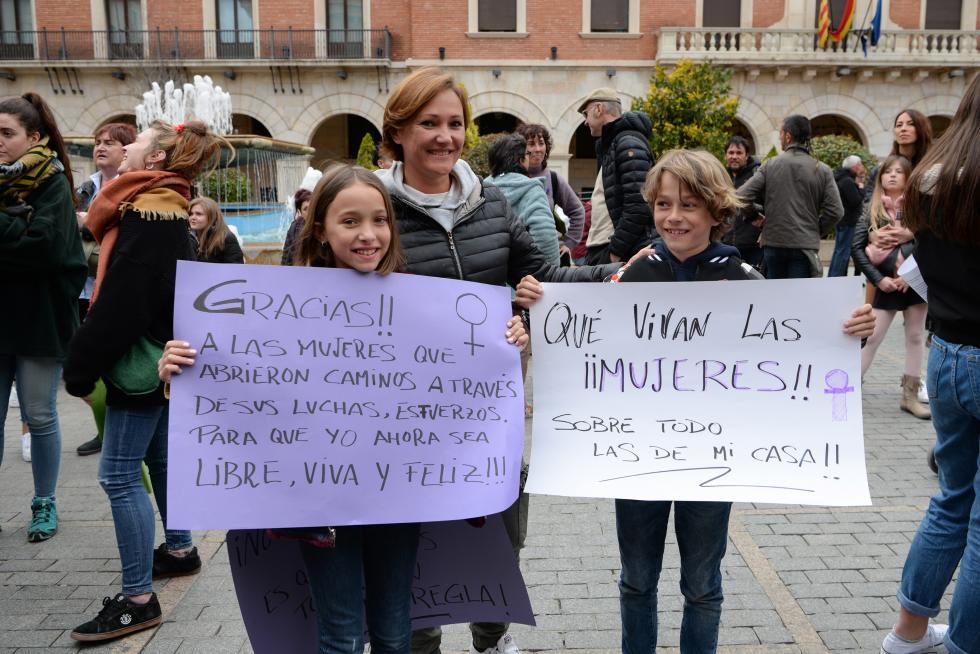 GRACIAS!!
A LAS MUJERES QUE
ABRIERON CAMINOS A TRAVÉS
DE SUS LUCHAS, ESFUERZOS.
PARA QUE YO AHORA SEA
LIBRE, VIVA Y FELIZ!!!
QUÉ VIVAN LAS
¡¡MUJERES!!
SOBRE TODO
LAS DE MI CASA!!
REGLA!